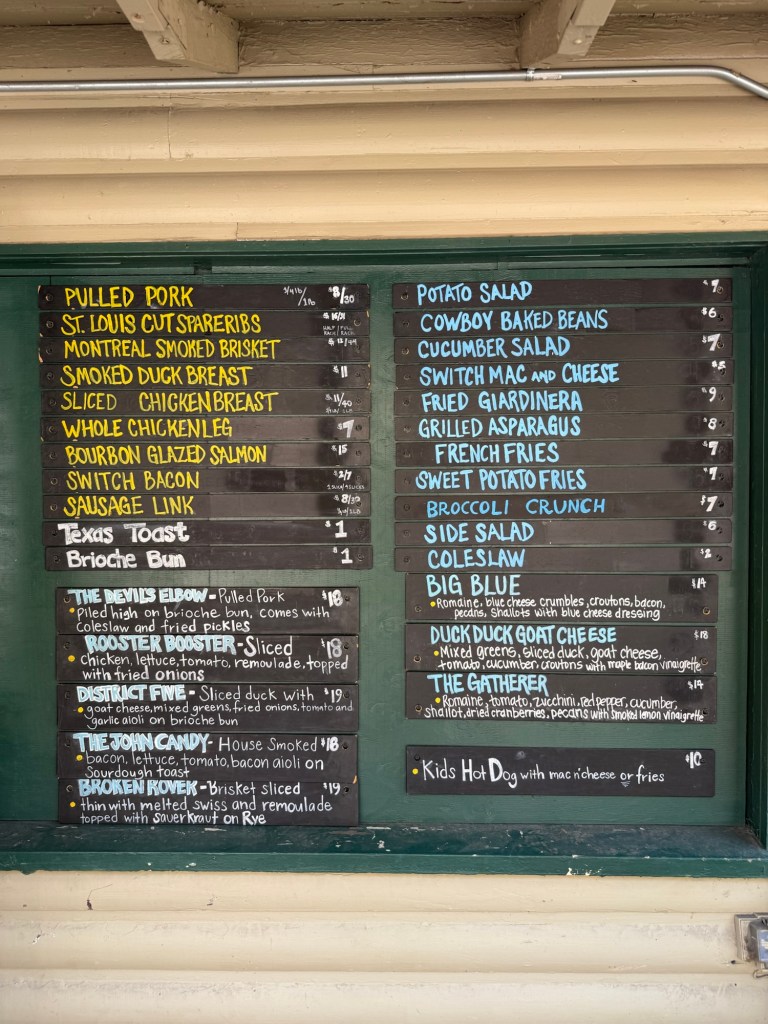 PULLED PORK 1/4 lb/1 lb $8/30
ST. LOUIS CUT SPARERIBS $16/31
HALF/FULL
RACK/RACK
MONTREAL SMOKED BRISKET $12/44
SMOKED DUCK BREAST $11
SLICED CHICKEN BREAST $11/40
WHOLE CHICKEN LEG $7
BOURBON GLAZED SALMON $15
SWITCH BACON $2/7
SAUSAGE LINK $8/30
Texas Toast $1
Brioche Bun $1
THE DEVILS ELBOW - Pulled Pork $18
• Piled high on brioche bun, comes with
Coleslaw and fried pickles
ROOSTER BOOSTER - Sliced $18
• chicken, lettuce, tomato, remoulade, topped
with fried onions
DISTRICT FIVE - Sliced duck with $19
• goat cheese, mixed greens, fried onions, tomato and
garlic aioli on brioche bun
THE JOHN CANDY - House Smoked $18
• bacon, lettuce, tomato, bacon aioli on
Sourdough toast
BROKEN ROVEK - Brisket sliced $19
• thin with melted swiss and remoulade
topped with sauerkraut on Rye
POTATO SALAD $7
COWBOY BAKED BEANS $6
CUCUMBER SALAD $7
SWITCH MAC AND CHEESE $8
FRIED GIARDINERA $9
GRILLED ASPARAGUS $8
FRENCH FRIES $7
SWEET POTATO FRIES $7
BROCCOLI CRUNCH $7
SIDE SALAD $6
COLESLAW $2
BIG BLUE $14
• Romaine, blue cheese crumbles, croutons, bacon,
pecans, shallots with blue cheese dressing
DUCK DUCK GOAT CHEESE $18
• Mixed greens, sliced duck, goat cheese,
tomato, cucumber, croutons with maple bacon vinaigrette
THE GATHERER $14
• Romaine, tomato, zucchini, red pepper, cucumber,
shallot, dried cranberries, pecans with smoked lemon vinaigrette
• Kids Hot Dog with mac n' cheese or fries $10